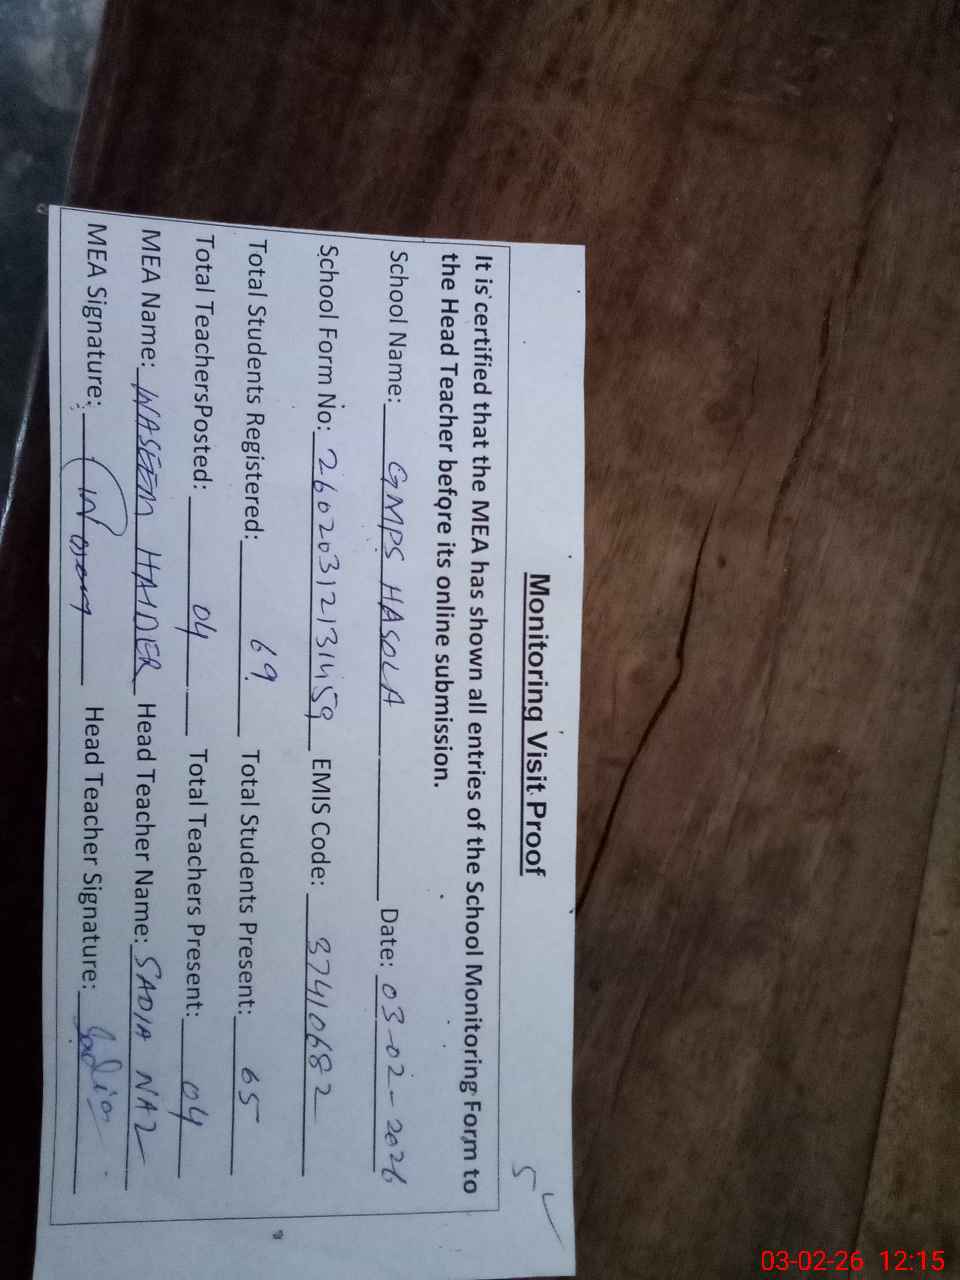 5
Monitoring Visit Proof
It is certified that the MEA has shown all entries of the School Monitoring Form to
the Head Teacher before its online submission.
School Name: GMPS HASOLA Date: 03-02-2026
School Form No: 260203121311459 EMIS Code: 37410682
Total Students Registered: 69 Total Students Present: 65
Total TeachersPosted: 04 Total Teachers Present: 04
MEA Name: WASEEM HAIDER Head Teacher Name: SADIA NAZ
MEA Signature: Head Teacher Signature: Sadia
03-02-26 12:15